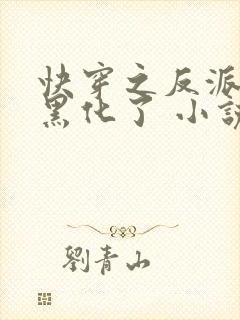 快穿之反派
黑化了 小說
劉青山